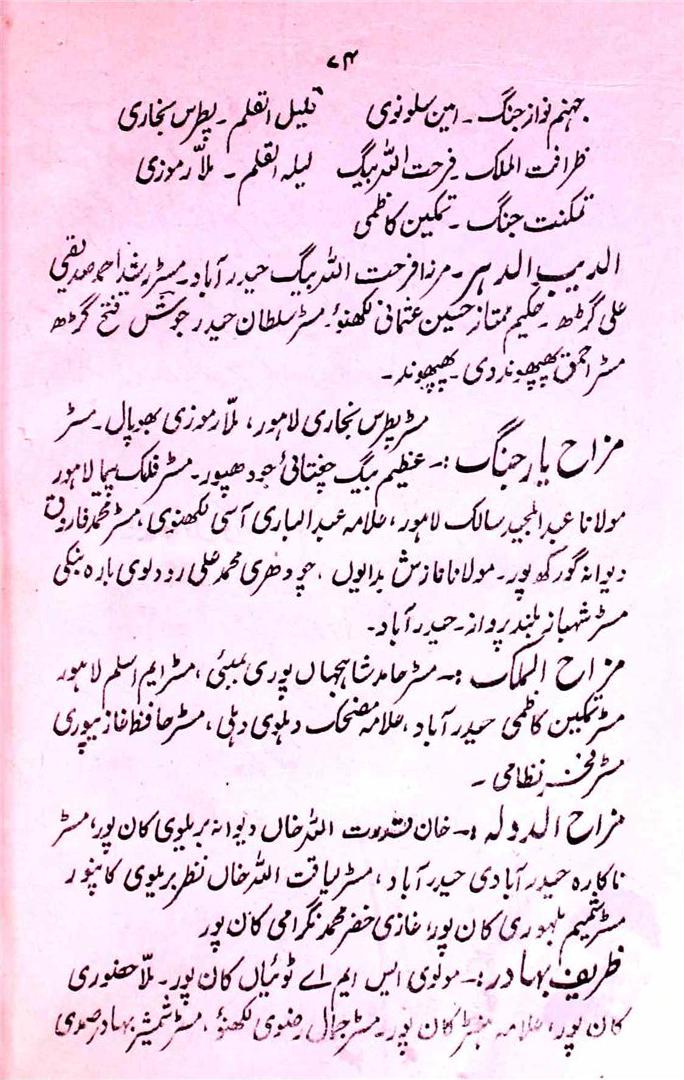 ۷۴
جہنم نواز جنگ ۔ امین سلونوی قلیل القلم ۔ پطرس بخاری
ظرافت الملک ۔ فرحت اللہ بیگ لیلہ القلم ۔ ملّا رموزی
تمکنت جنگ ۔ تمکین کاظمی
الدیب الدہر ۔ مرزا فرحت اللہ بیگ حیدرآباد ۔ مسٹر رشید احمد صدیقی
علی گڑھ ۔ حکیم ممتاز حسین عثمانی لکھنؤ ۔ مسٹر سلطان حیدر جوش فتح گڑھ
مسٹر احمق پھپھوندوی ۔ پھپھوند ۔
مسٹر پطرس بخاری لاہور، ملّا رموزی بھوپال ۔ مسٹر
مزاح یار جنگ :۔ عظیم بیگ چغتائی جودھپور ۔ مسٹر فلک پیما لاہور
مولانا عبدالمجید سالک لاہور، علامہ عبدالباری آسی لکھنوی، مسٹر محمد فاروق
دیوانہ گورکھپور ۔ مولانا نازش بدایوں، چودھری محمد علی رودلوی بارہ بنکی
مسٹر شہباز بلند پرواز ۔ حیدرآباد ۔
مزاح الملک :۔ مسٹر حامد شاہجہاں پوری بمبئی، مسٹر ایم اسلم لاہور
مسٹر تمکین کاظمی حیدرآباد، علامہ مضحک دہلوی دہلی، مسٹر حافظ غازیپوری
مسٹر نظامی ۔
مزاح الدولہ :۔ خان قدرت اللہ خاں دیوانہ بریلوی کان پور، مسٹر
ناکارہ حیدرآبادی حیدرآباد، مسٹر لیاقت اللہ خاں نظر بریلوی کانپور
مسٹر شمیم بلہوری کان پور، غازی خضر محمد نگرامی کان پور
ظریف بہادر :۔ مولوی ایس ایم اے ٹوئیاں کان پور ۔ ملّا حضوری
کان پور، علامہ کان پور ۔ مسٹر جمال رضوی لکھنؤ، مسٹر شمشیر بہادر صمدی